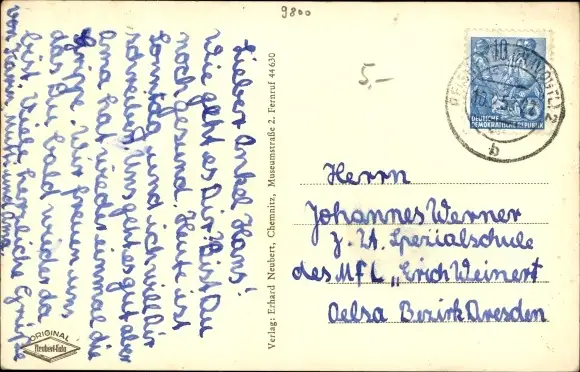 9800
5,-
Lieber Onkel Hans!
Wie geht es Dir? Bist Du
noch gesund. Heute ist
Sonntag und ich will Dir
schreiben. Uns geht es gut aber
Oma hat wieder einmal die
Grippe. Wir freuen uns
das Du bald wieder da
bist. Viele herzliche Grüße
von
Verlag: Erhard Neubert, Chemnitz, Museumstraße 2, Fernruf 44630
DEUTSCHE
DEMOKRATISCHE REPUBLIK
b
Herrn
Johannes Werner
z. Zt. Spezialschule
des MfL „Erich Weinert
Oelsa Bezirk Dresden
ORIGINAL
Neubert-Foto